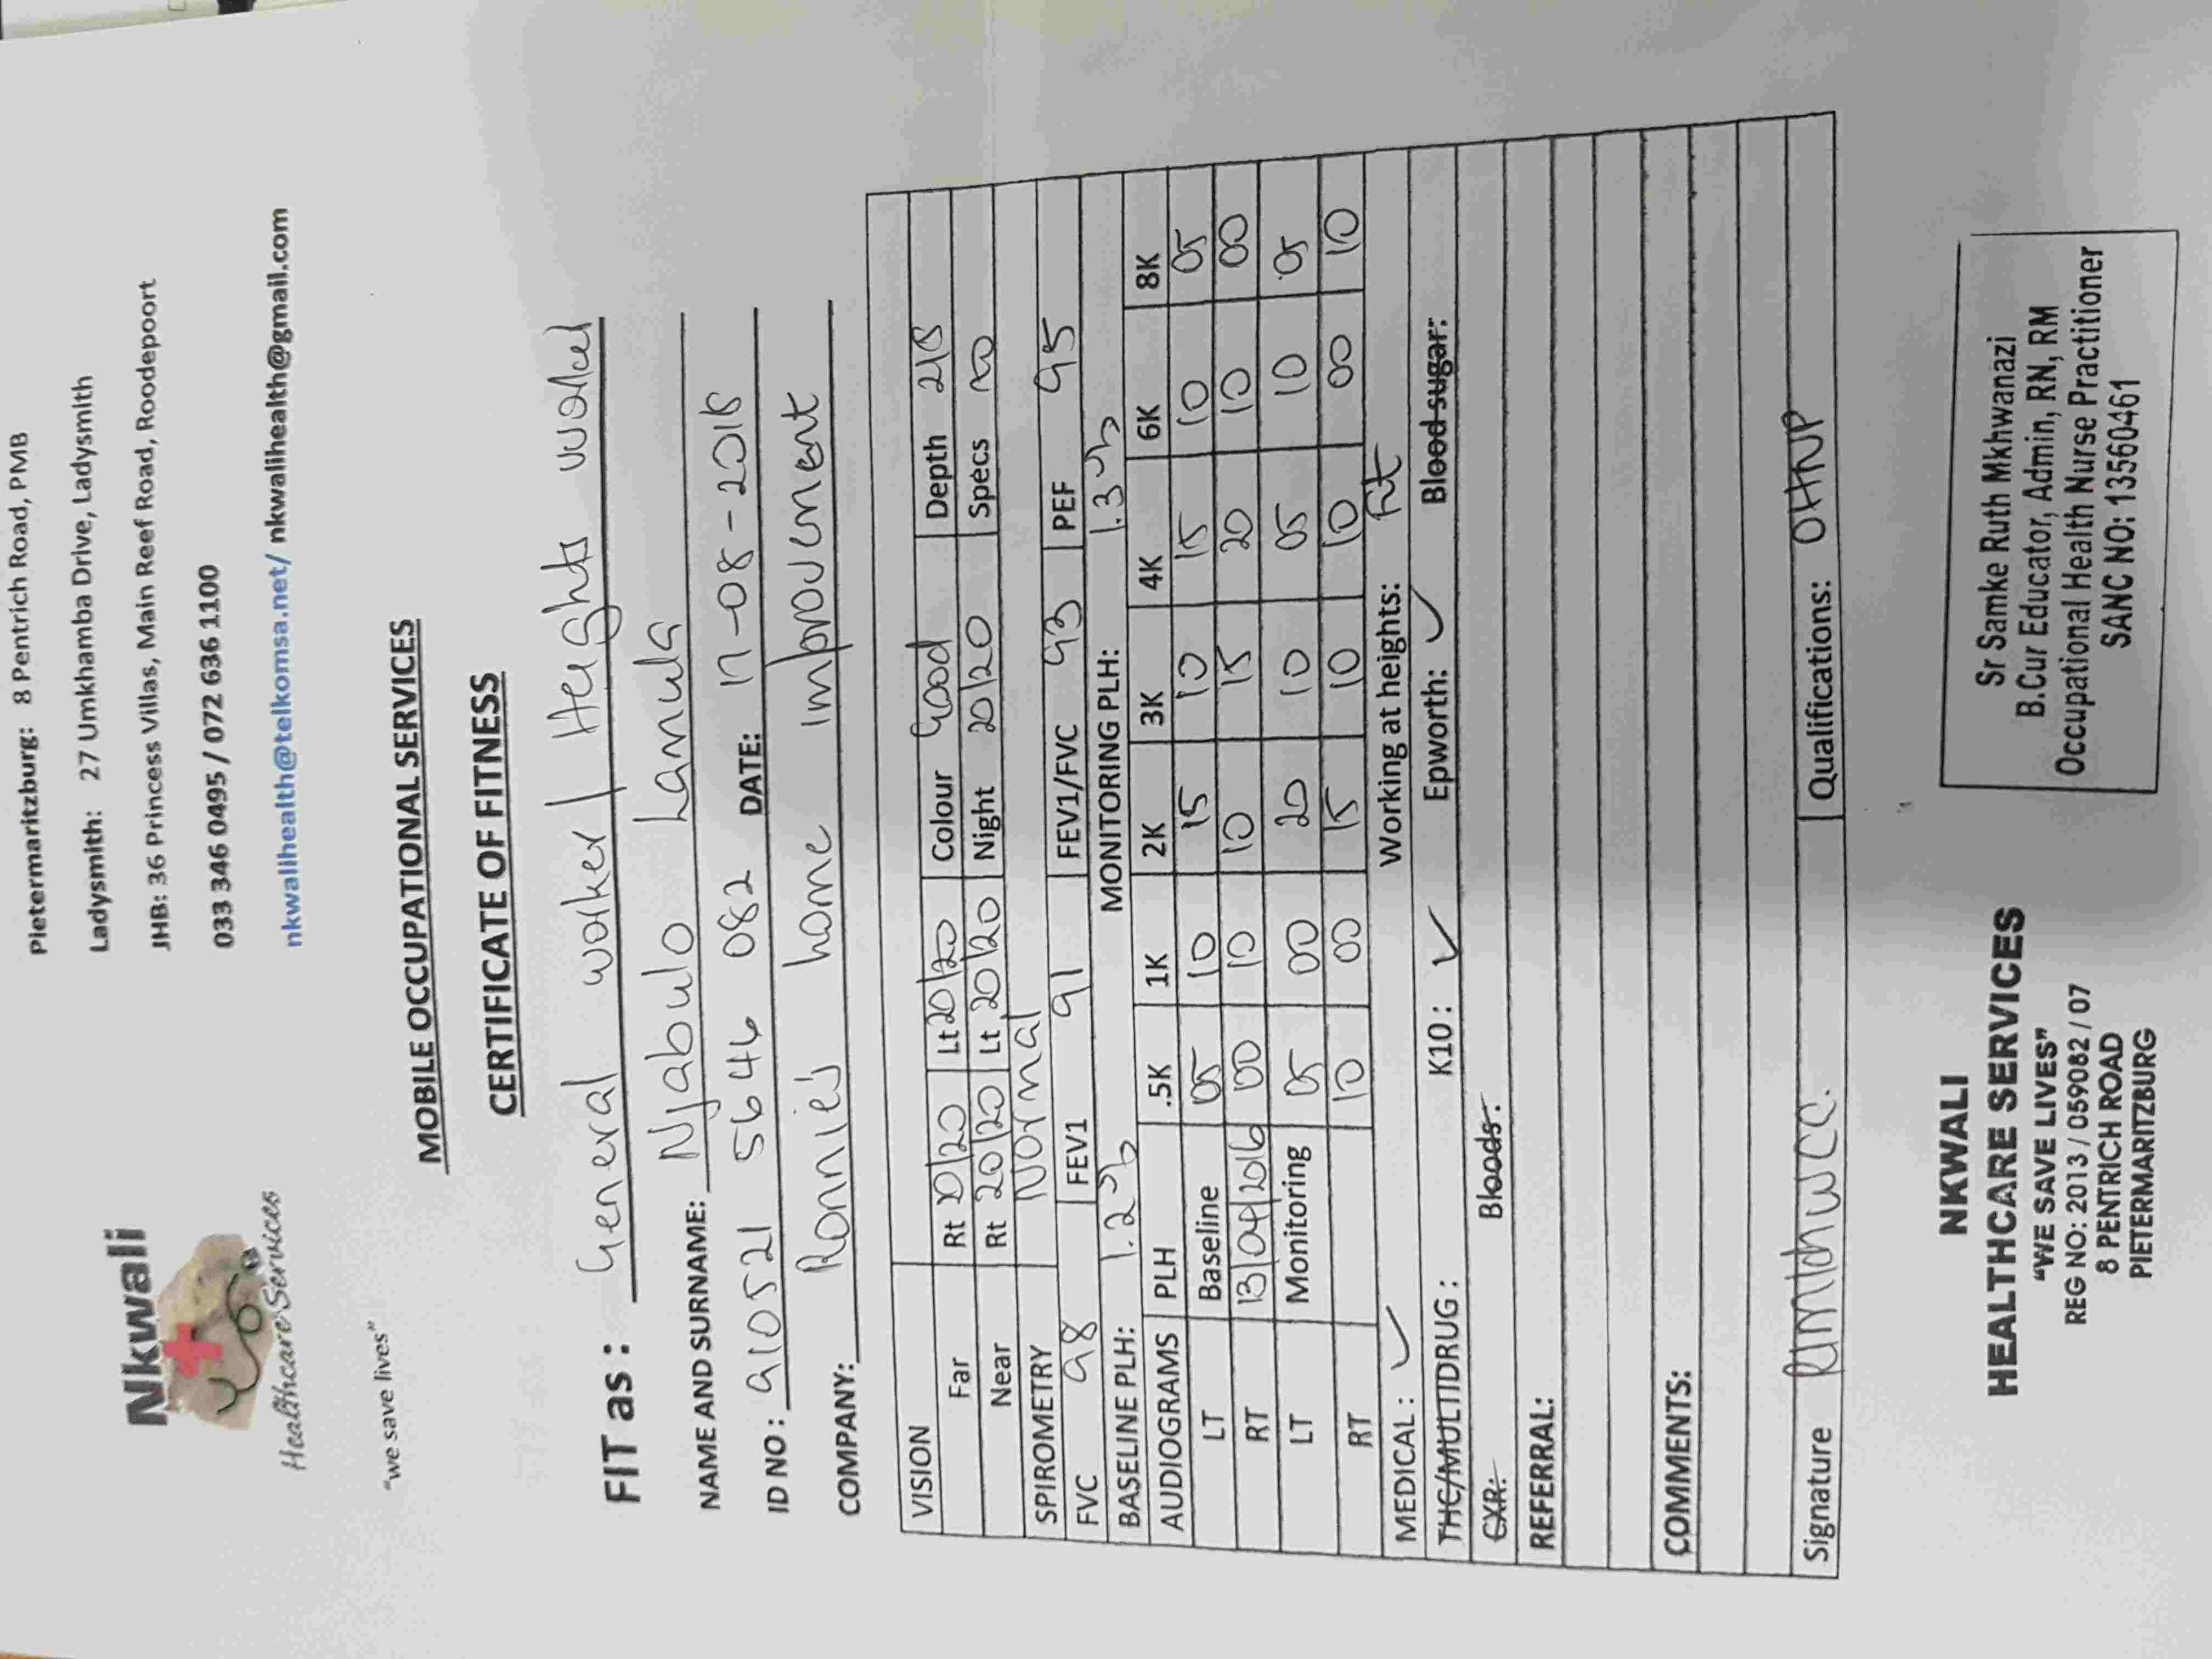 Nkwali
Healthcare Services
"we save lives"
Pietermaritzburg: 8 Pentrich Road, PMB
Ladysmith: 27 Umkhamba Drive, Ladysmith
JHB: 36 Princess Villas, Main Reef Road, Roodepoort
033 346 0495 / 072 636 1100
nkwalihealth@telkomsa.net/ nkwalihealth@gmail.com
MOBILE OCCUPATIONAL SERVICES
CERTIFICATE OF FITNESS
FIT as : General worker / Heights worker
NAME AND SURNAME: Njabulo Lamula
ID NO: 910521 5644 082 DATE: 17-08-2018
COMPANY: Ronnie's home improvement
VISION
Far Rt 20/20 Lt 20/20 Colour Good Depth 2/8
Near Rt 20/20 Lt 20/20 Night 20/20 Specs no
SPIROMETRY Normal
FVC 98 FEV1 91 FEV1/FVC 93 PEF 95
BASELINE PLH: 1.2% MONITORING PLH: 1.3%
AUDIOGRAMS PLH .5K 1K 2K 3K 4K 6K 8K
LT Baseline 05 10 15 10 15 10 05
RT 13/04/2016 00 10 10 15 20 10 00
LT Monitoring 05 00 20 10 05 10 05
RT 10 00 15 10 10 00 10
MEDICAL: ✓ Working at heights: Fit
THC/MULTIDRUG: K10: ✓ Epworth: ✓ Blood sugar:
CXR: Bloods:
REFERRAL:
COMMENTS:
Signature Qualifications: OHNP
NKWALI
HEALTHCARE SERVICES
"WE SAVE LIVES"
REG NO: 2013 / 059082 / 07
8 PENTRICH ROAD
PIETERMARITZBURG
Sr Samke Ruth Mkhwanazi
B.Cur Educator, Admin, RN, RM
Occupational Health Nurse Practitioner
SANC NO: 13560461